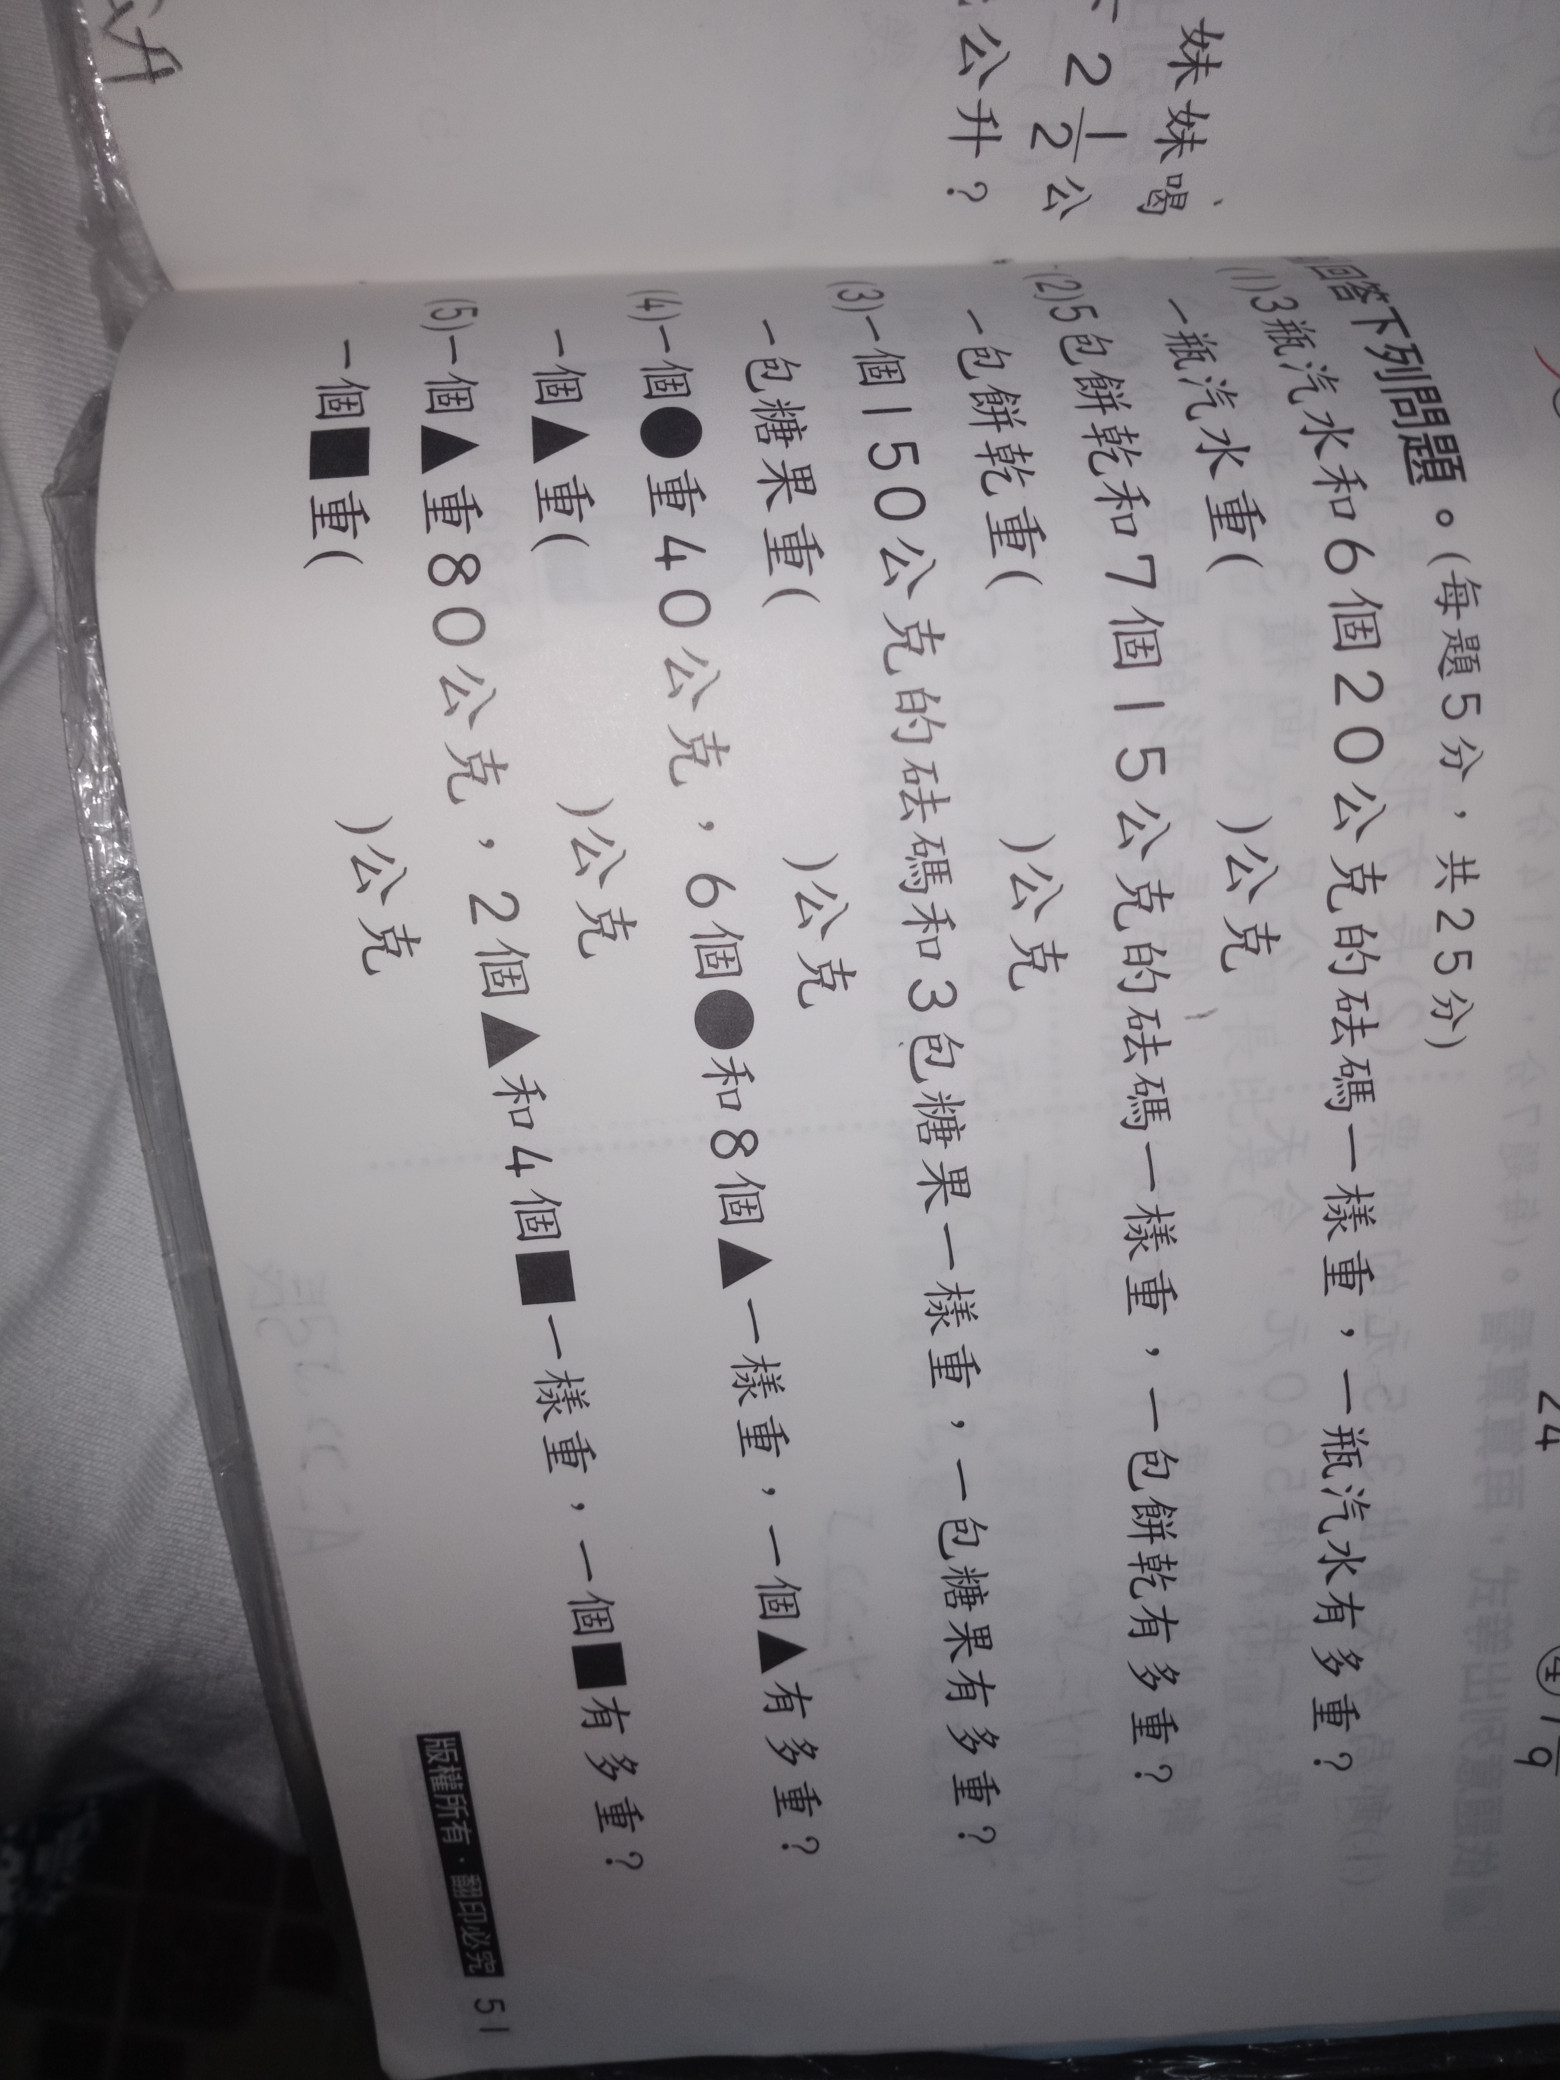 妹妹喝
2 1/2 公
公升？
回答下列問題。(每題5分，共25分)
(1)3瓶汽水和6個20公克的砝碼一樣重，一瓶汽水有多重？
一瓶汽水重( )公克
(2)5包餅乾和7個15公克的砝碼一樣重，一包餅乾有多重？
一包餅乾重( )公克
(3)一個150公克的砝碼和3包糖果一樣重，一包糖果有多重？
一包糖果重( )公克
(4)一個●重40公克，6個●和8個▲一樣重，一個▲有多重？
一個▲重( )公克
(5)一個▲重80公克，2個▲和4個■一樣重，一個■有多重？
一個■重( )公克
版權所有．翻印必究 51
24